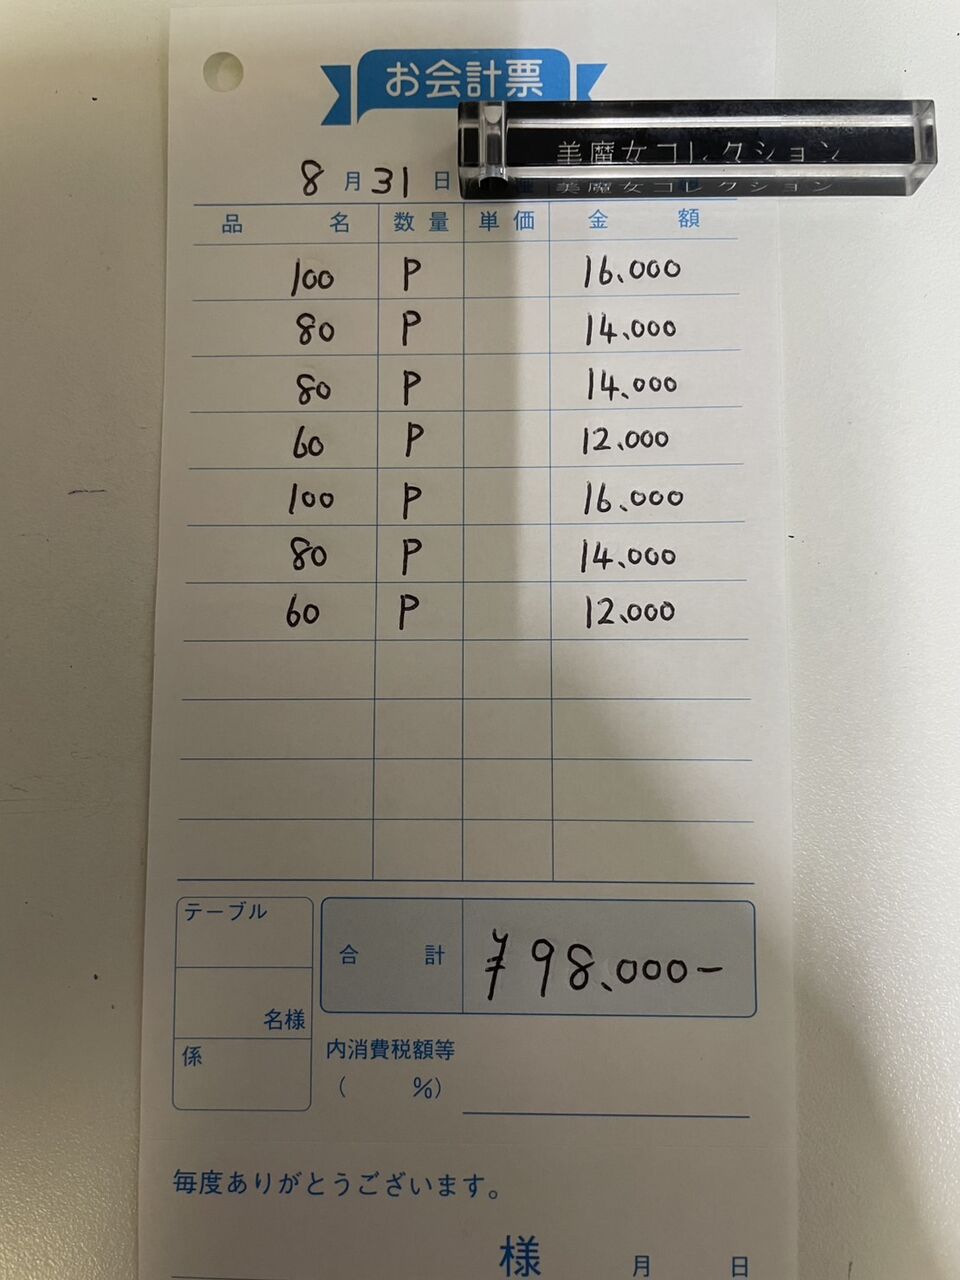 お会計票
美魔女コレクション
美魔女コレクション
8月31日
品名 数量 単価 金額
100 P 16.000
80 P 14.000
80 P 14.000
60 P 12.000
100 P 16.000
80 P 14.000
60 P 12.000
テーブル
合計 ¥98.000-
名様
係
内消費税額等
( %)
毎度ありがとうございます。
様 月 日